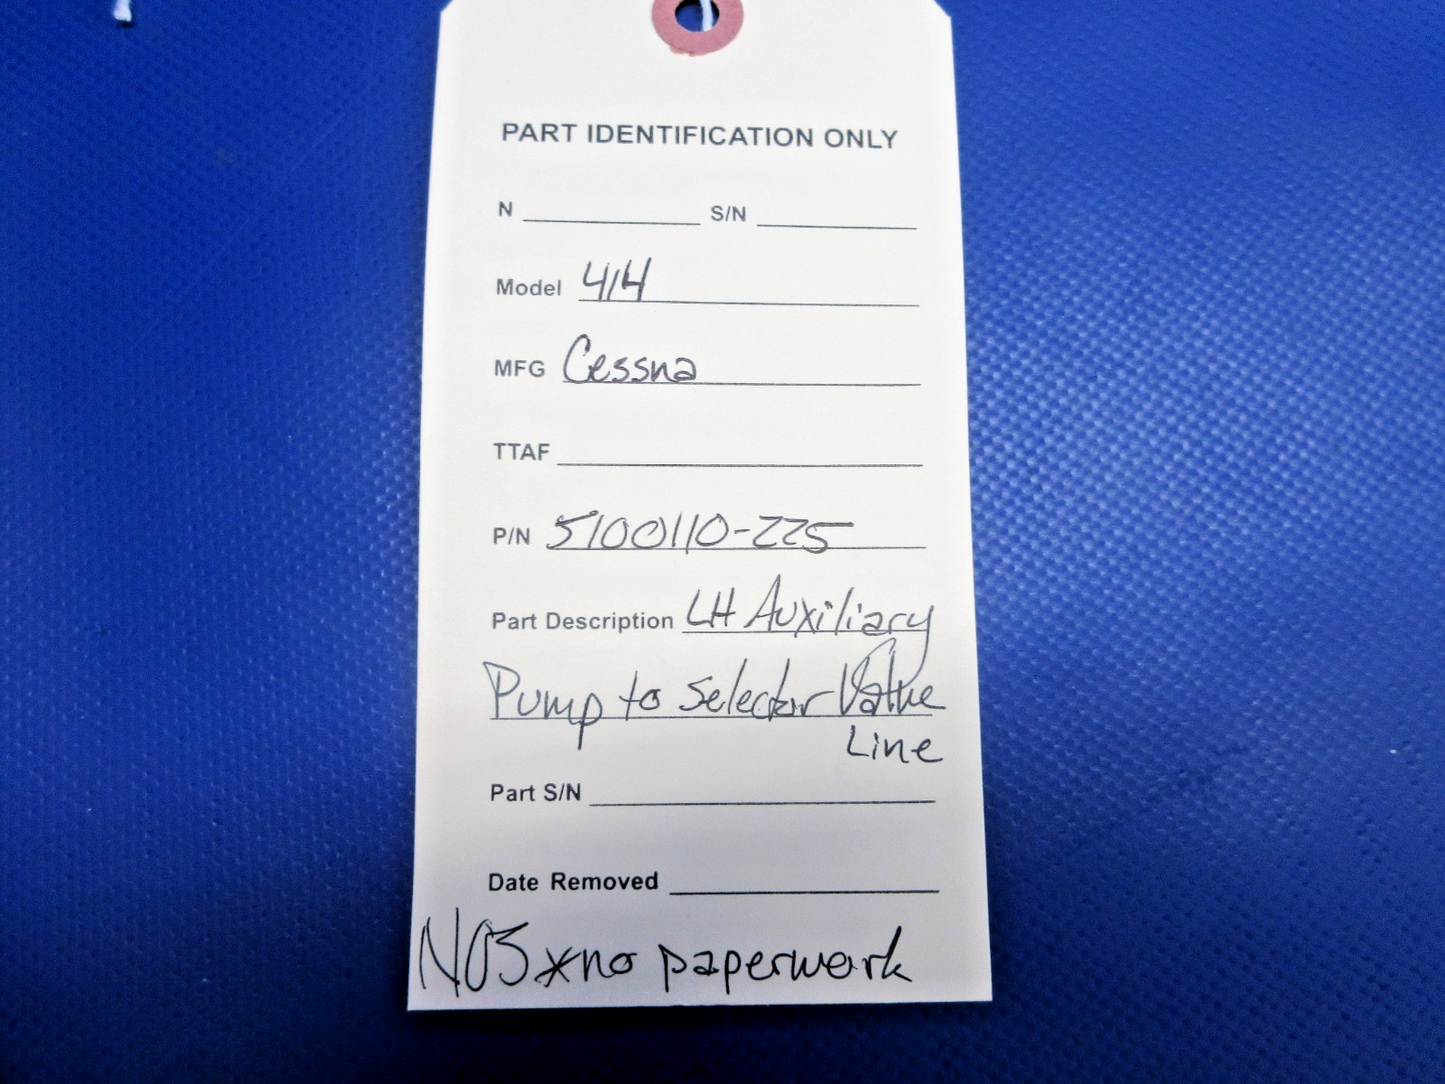 PART IDENTIFICATION ONLY
N S/N
Model 414
MFG Cessna
TTAF
P/N 5100110-225
Part Description LH Auxiliary
Pump to Selector Valve
Line
Part S/N
Date Removed
NOS *no paperwork